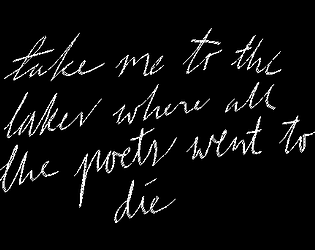 take me to the
lakes where all
the poets went to
die